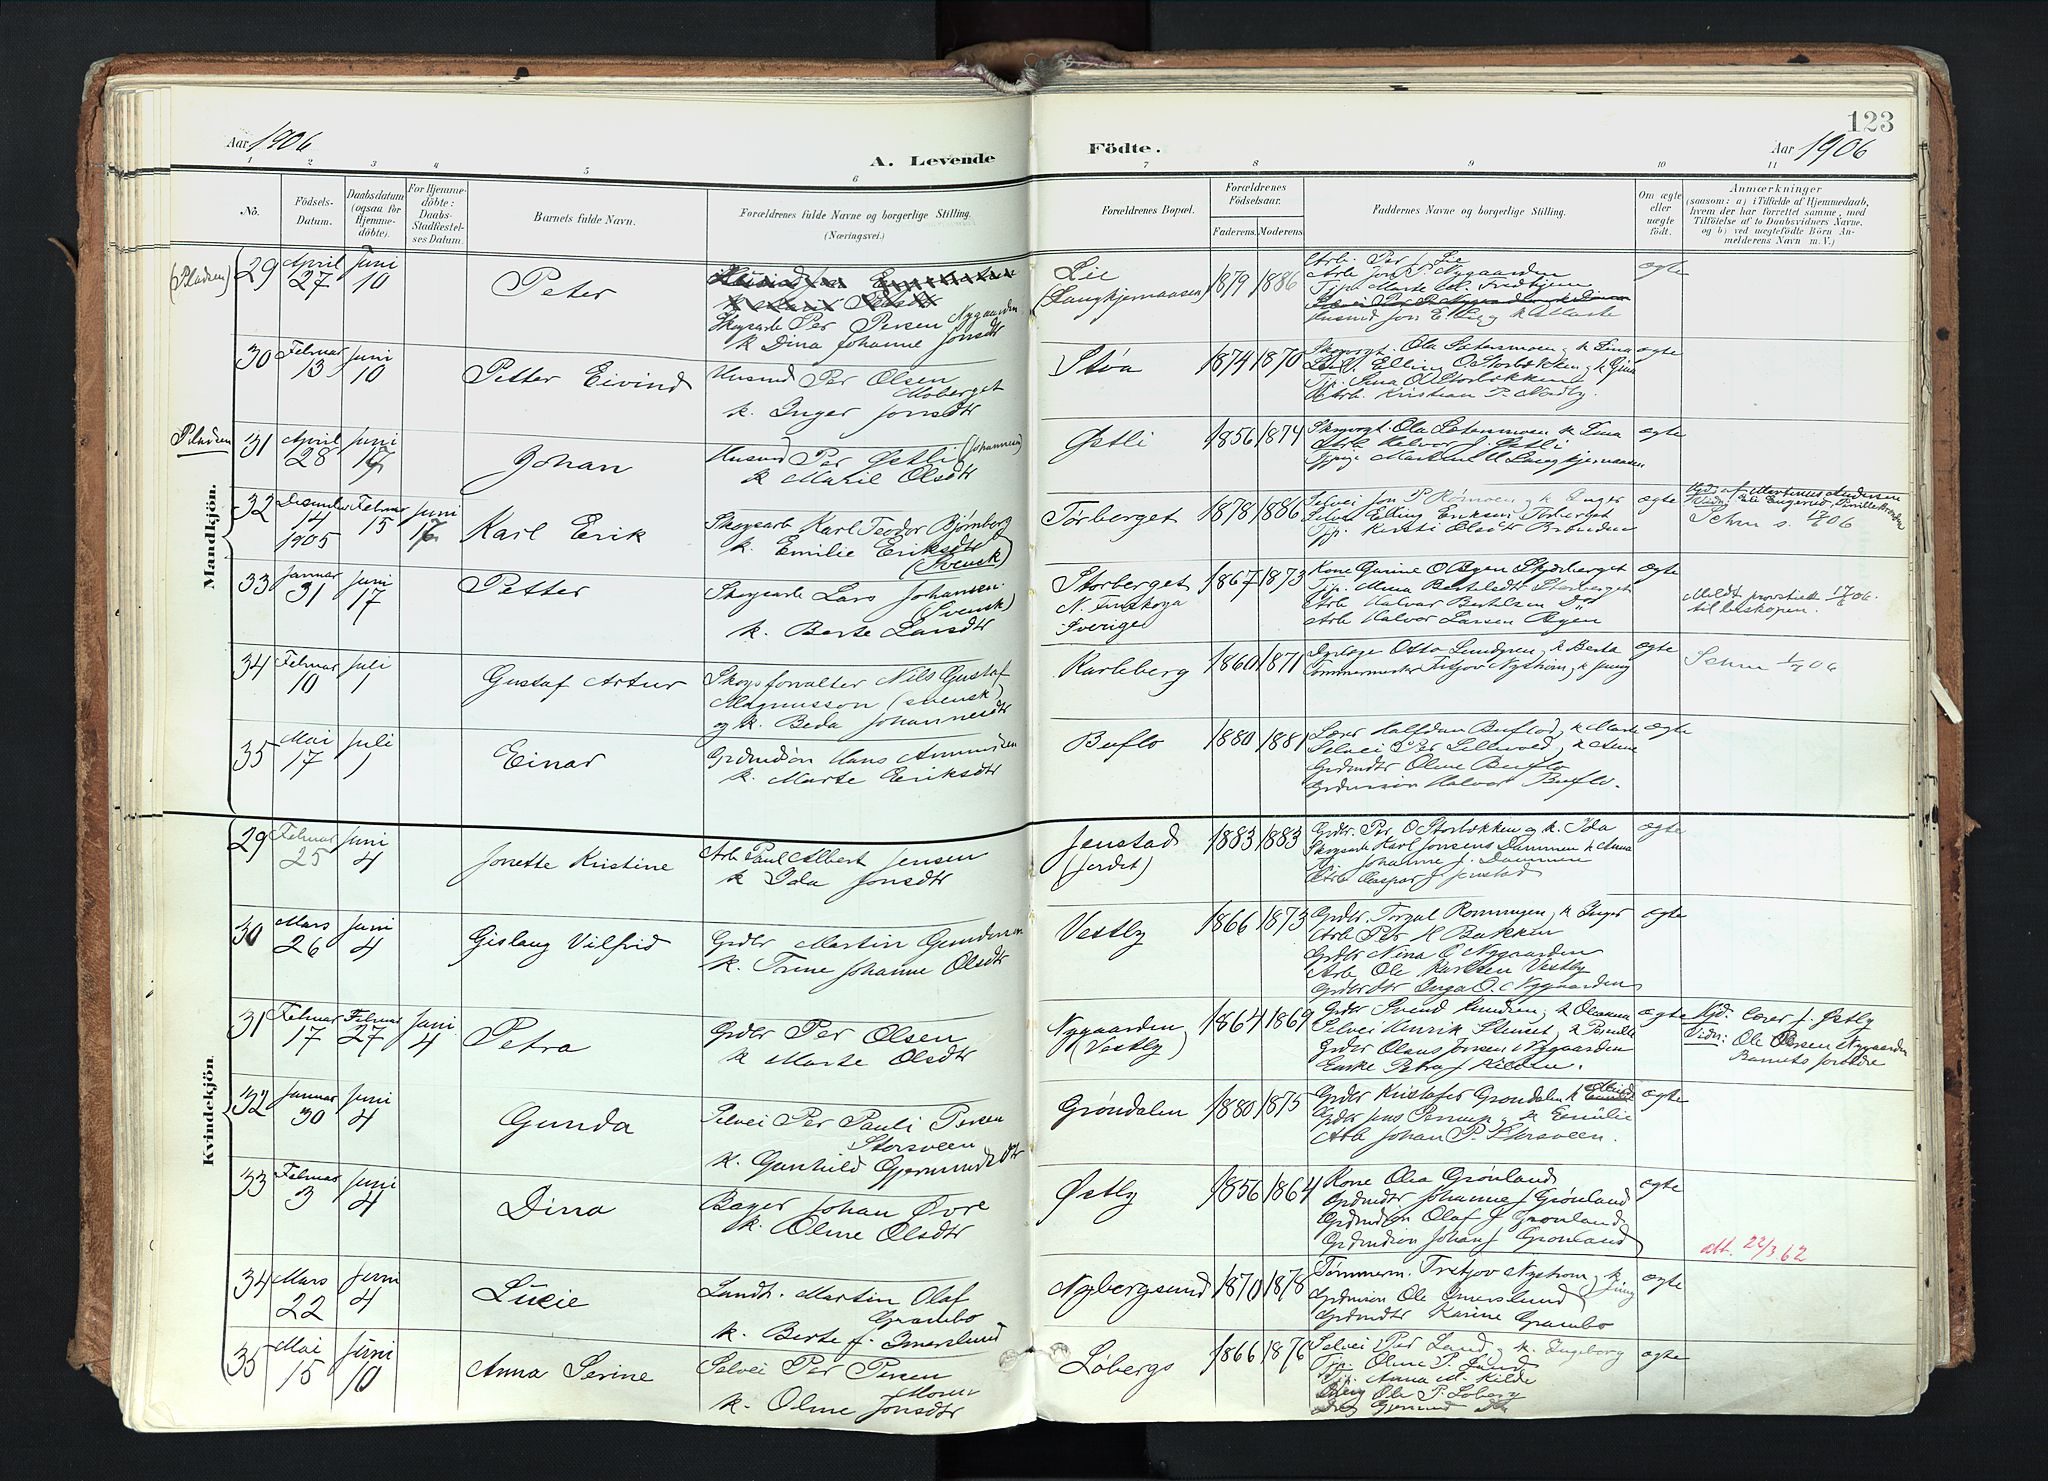 123
Aar 1906
A. Levende
Födte.
Aar 1906
1 2 3 4 5 6 7 8 9 10 11
No.
Födsels-
Datum.
Daabsdatum
(ogsaa for
Hjemme-
döbte).
For Hjemme-
döbte:
Daabs-
Stadfæstel-
ses Datum.
Barnets fulde Navn.
Forældrenes fulde Navne og borgerlige Stilling.
(Næringsvei.)
Forældrenes Bopæl.
Forældrenes
Födselsaar.
Faderens. Moderens.
Faddernes Navne og borgerlige Stilling.
Om ægte
eller
uægte
födt.
Anmærkninger
(saasom: a) i Tilfælde af Hjemmedaab,
hvem der har forrettet samme, med
Tilföielse af to Daabsvidners Navne,
og b) ved uægtefödte Börn An-
melderens Navn m. V.)
Mandkjön.
(Pladsen)
29 April 27 Juni 10
Peter
Skogsarb Per Persen Nygaarden
k Dina Johanne Jonsdtr
Lie
(Langkjernaasen)
1879 1886
Arb. Per J. Lie
Arb Jon P. Nygaarden
Tjp. Marte M.
ægte
30 Februar 13 Juni 10
Petter Eivind
Husmd Per Olsen
Moberget
k. Inger Jonsdtr
Støa
1874 1870
Skovvgt. Ola Sætersmoen, k Lina
Elling O. Storbækken, k Gina
Tjp. Lina O Storbækken
Arb. Kristian P. Nordby.
ægte
Pladsen
31 April 28 Juni 17
Johan
Husmd Per Østli (Johannesen)
k Maril Olsdtr
Østli
1856 1874
Skovvgt. Ola Sætersmoen k Lina
Arb Halvor J. Østli
Langkjernaasen
ægte
32 Desember 14 1905 Februar 15 Juni 17
Karl Erik
Skogsarb Karl Teodor Bjørnberg
k. Emilie Eriksdtr
(Svensk)
Tørberget
1878 1886
Selvei Jon P k Inger
Selvei Elling Eriksen Tørberget
Tjp. Kirsti Olsdtr Brænden
ægte
Hjd. af Martinus Andersen
33 Januar 31 Juni 17
Petter
Skogsarb Lars Johansen
(Svensk)
k. Berte Larsdtr
Storberget
N. Finskoga
Sverige
1867 1873
Kone Gurine O Øyen Skjærberget
Tjp. Anna Bertelsdtr Storberget
Arb Halvor Bertelsen Do
Arb Halvor Larsen Øyen
ægte
Meldt provstiet 17/6 06.
til biskopen.
34 Februar 10 Juli 1
Gustaf Artur
Skogsforvalter Nils Gustaf
Magnusson (svensk)
og k. Beda Johannesdtr
Karlsberg
1860 1871
Otto Lundgren, k Berta
Tømmermerker Tretjov Nystrøm, k Jenny
ægte
35 Mai 17 Juli 1
Einar
Grdmdsøn Hans Amundsen
k. Marte Eriksdtr
Buflo
1880 1881
Lærer Halfdan Buflod, k Marte
Selvei Per Lillevold, k Anne
Grdmdtr Oline Buflo
Grdmdsøn Halvor Buflo.
ægte
Kvindekjön.
29 Februar 25 Juni 4
Jonette Kristine
Arb Paul Albert Jensen
k Ida Jonsdtr
Jenstad
(Jordet)
1883 1883
Grdbr. Per O Storbækken og k. Ida
Skogsarb Karl Jonsens Dammen k Anna
Tjp. Johanne J. Dammen
Arb Caspar J. Jenstad
ægte
30 Mars 26 Juni 4
Gislaug Vilfrid
Grdbr Martin Gundersen
k. Trine Johanne Olsdtr
Vestby
1866 1873
Grdbr. Torgal Rømmingen, k Inger
Arb Per H Bakken
Grdbr Nina O Nygaarden
Arb Ole Karlsen Vestby
Grdbrdtr Inga O. Nygaarden
ægte
31 Februar 17 Februar 27 Juni 4
Petra
Grdbr Per Olsen
k Marte Olsdtr
Nygaarden
(Vestby)
1864 1869
Grdbr Svend Knudsen, k Oleanna
Selvei Henrik Stenset, k Pernille
Grdbr Olaus Jonsen Nygaarden
Enke Petra J Kilden.
ægte
Hjd. Lærer J. Østby
Vidn: Ole Olsen Nygaarden
Barnets forældre
32 Januar 30 Juni 4
Gunda
Selvei Per Pauli Persen
Storsveen
k. Gunhild Gjermundsdtr
Grøndalen
1880 1875
Grdbr Kristofer Grøndalen k
Grdbr Jens Persen, k Emilie
Arb Johan P. Storsveen.
ægte
33 Februar 3 Juni 4
Dina
Bager Johan Øvre
k. Oline Olsdtr
Østby
1856 1864
Kone Olea Grønland
Grdmdtr Johanne J Grønland
Grdmdsøn Olaf J Grønland
Grdmdsøn Johan J Grønland
ægte
att. 22/3 62
34 Mars 22 Juni 4
Lucie
Landh. Martin Olaf
Grambo
k. Berte J. Imerslund
Nybergsund
1870 1878
Tømmerm. Tretjov Nystrøm, k Jenny
Grdmdsøn Ole Imerslund
Grdmdtr Karine Grambo
ægte
35 Mai 15 Juni 10
Anna Serine
Selvei Per Persen
Moren
k. Oline Jonsdtr
Løbergs
1866 1876
Selvei Per Lund, k. Ingeborg
Tjp. Oline P. Lund
Tjp. Anna M. Kilde
Ole P. Løberg
ægte